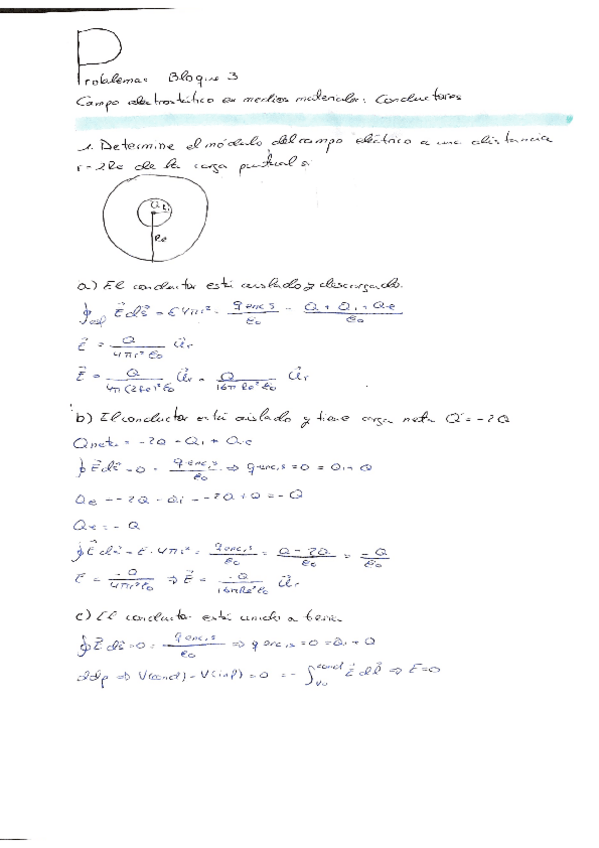 Problemas Bloque 3
Campo electrostático en medios materiales: Conductores
1. Determine el módulo del campo eléctrico a una distancia
r = 2Re de la carga puntual
Q Ri
Re
a) El conductor está aislado y descargado.
∮ E⃗ ds⃗ = E 4πr² = q enc,s / ε0 = Q + Qi + Qe / ε0
E⃗ = Q / 4πr²ε0 u⃗r
E⃗ = Q / 4π(2Re)²ε0 u⃗r = Q / 16πRe²ε0 u⃗r
b) El conductor está aislado y tiene carga neta Q' = -2Q
Qneta = -2Q = Qi + Qe
∮ E⃗ ds⃗ = 0 = q enc,s / ε0 ⇒ q enc,s = 0 = Qi + Q
Qe = -2Q - Qi = -2Q + Q = -Q
Qe = -Q
∮ E⃗ ds⃗ = E · 4πr² = q enc,s / ε0 = Q - 2Q / ε0 = -Q / ε0
E = -Q / 4πr²ε0 ⇒ E⃗ = -Q / 16πRe²ε0 u⃗r
c) El conductor está unido a tierra
∮ E⃗ ds⃗ = 0 = q enc,s / ε0 ⇒ q enc,s = 0 = Qi + Q
ddp ⇒ V(cond) - V(inf) = 0 = - ∫ cond E⃗ dl⃗ ⇒ E = 0